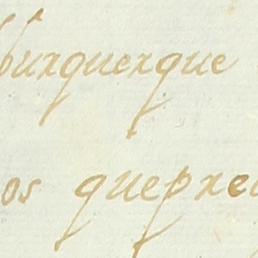 burquerque
os quepre